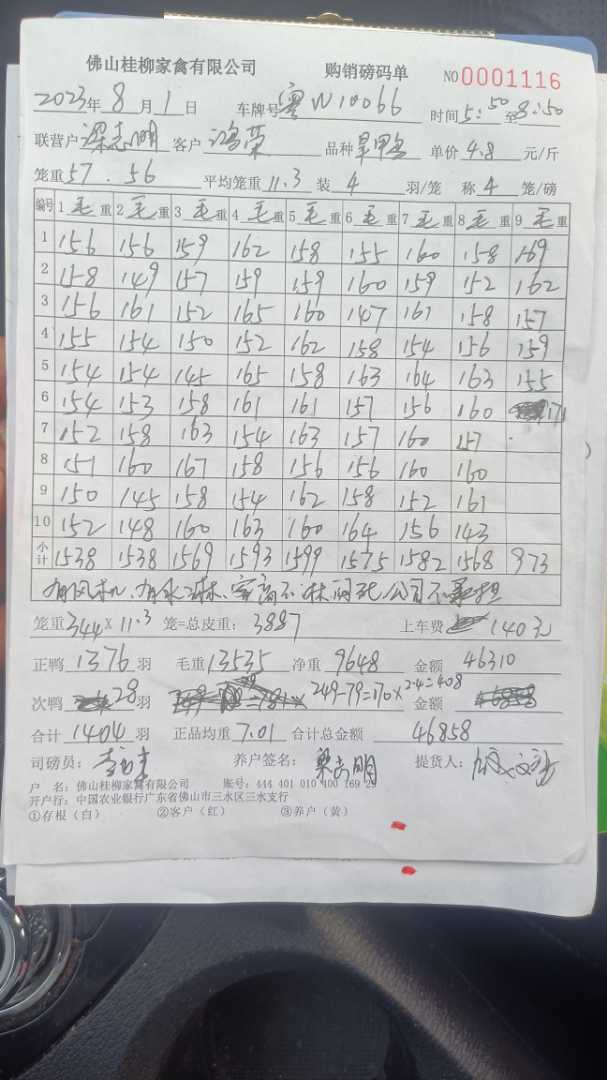 佛山桂柳家禽有限公司 购销磅码单 NO 0001116
2023年8月1日 车牌号粤W10066 时间5:50至8:50
联营户梁志明 客户鸿荣 品种旱鸭 单价4.8元/斤
笼重57.56 平均笼重11.3 装4羽/笼 称4笼/磅
编号 1毛重 2毛重 3毛重 4毛重 5毛重 6毛重 7毛重 8毛重 9毛重
1 156 156 159 162 158 155 160 158 169
2 158 149 157 159 159 160 159 152 162
3 156 161 152 165 160 147 161 158 157
4 155 154 150 152 162 158 154 156 159
5 154 154 145 165 158 163 164 163 155
6 154 153 158 161 161 157 156 160 171
7 152 158 163 154 163 157 160 157
8 151 160 167 158 156 156 160 160
9 150 145 158 154 162 158 152 161
10 152 148 160 163 160 164 156 143
小计 1538 1538 1569 1593 1599 1575 1582 1568 973
有风机,有水淋,客商不淋闷死公司不承担
笼重344×11.3笼=总皮重:3887 上车费140元
正鸭1376羽 毛重13535 净重9648 金额46310
次鸭28羽 249-79=170×2.4=408 金额
合计1404羽 正品均重7.01 合计总金额46858
司磅员: 养户签名:梁志明 提货人:
户 名:佛山桂柳家禽有限公司 账号:444 401 010 400 169 29
开户行:中国农业银行广东省佛山市三水区三水支行
①存根(白) ②客户(红) ③养户(黄)